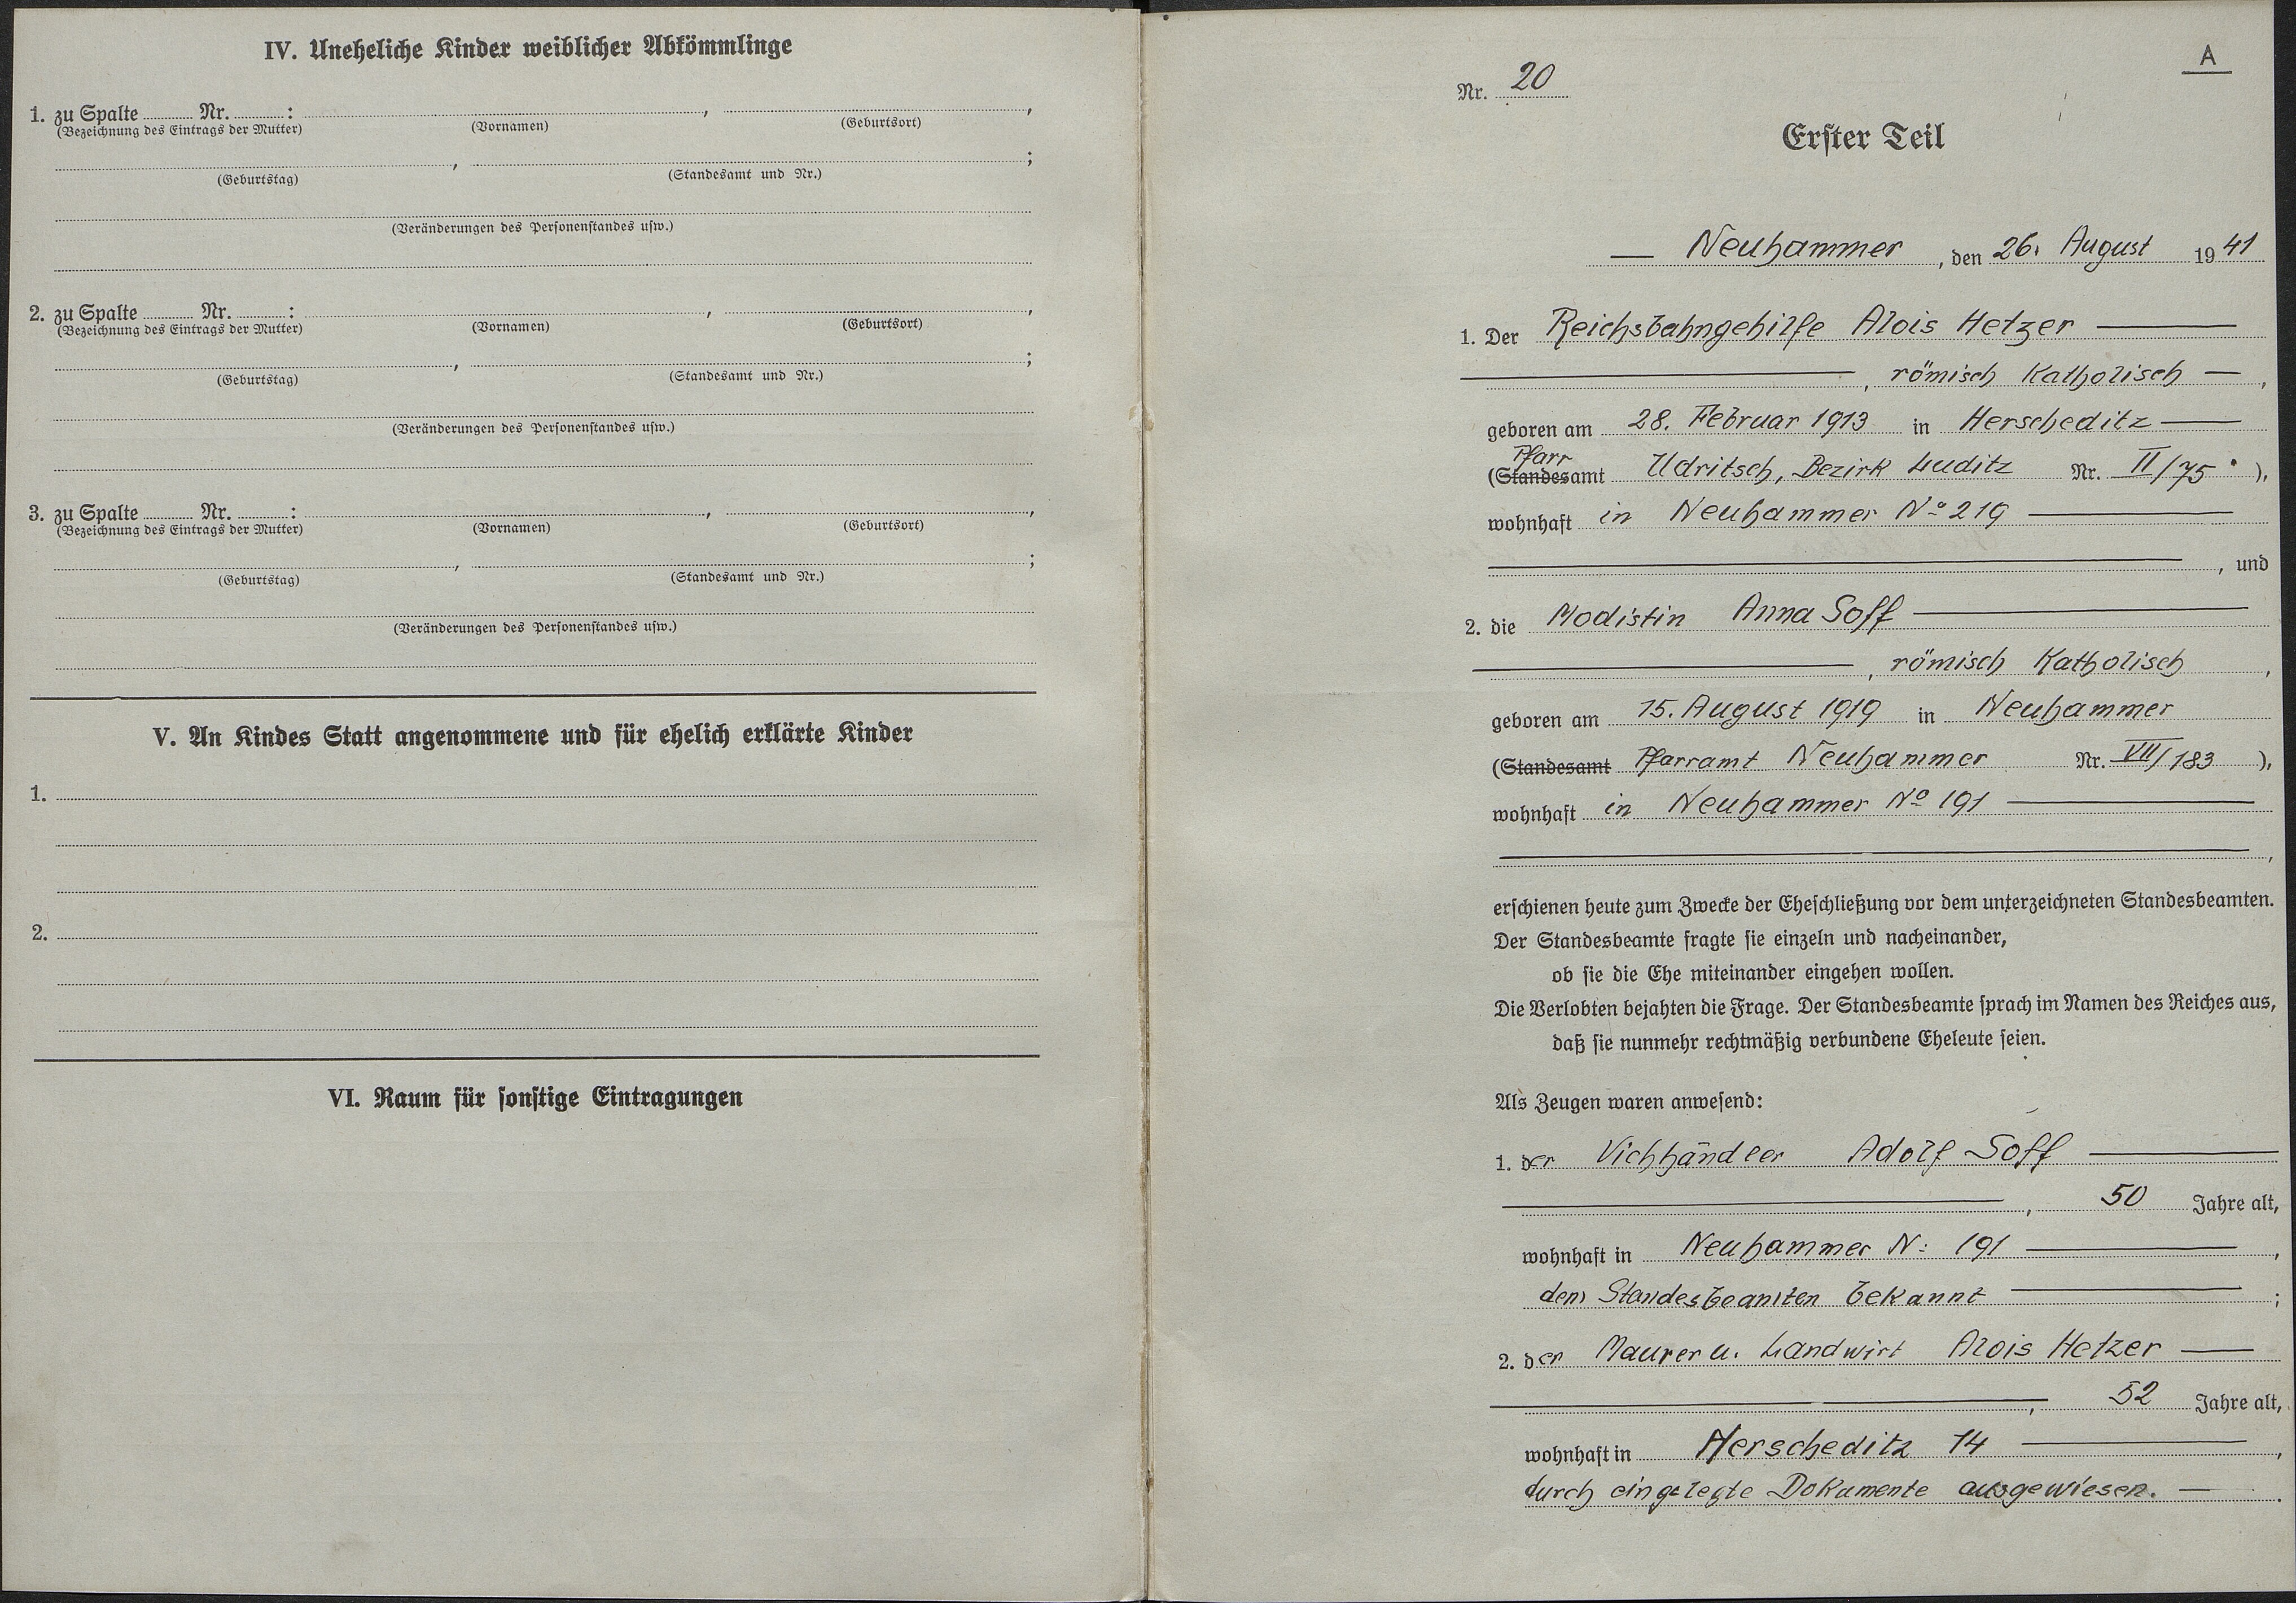 IV. Uneheliche Kinder weiblicher Abkömmlinge
1. zu Spalte ........ Nr. ........ : ........ , ........ ,
(Bezeichnung des Eintrags der Mutter) (Vornamen) (Geburtsort)
........ , ........ ;
(Geburtstag) (Standesamt und Nr.)
(Veränderungen des Personenstandes usw.)
2. zu Spalte ........ Nr. ........ : ........ , ........ ,
(Bezeichnung des Eintrags der Mutter) (Vornamen) (Geburtsort)
........ , ........ ;
(Geburtstag) (Standesamt und Nr.)
(Veränderungen des Personenstandes usw.)
3. zu Spalte ........ Nr. ........ : ........ , ........ ,
(Bezeichnung des Eintrags der Mutter) (Vornamen) (Geburtsort)
........ , ........ ;
(Geburtstag) (Standesamt und Nr.)
(Veränderungen des Personenstandes usw.)
V. An Kindes Statt angenommene und für ehelich erklärte Kinder
1.
2.
VI. Raum für sonstige Eintragungen
A
Nr. 20
Erster Teil
— Neuhammer, den 26. August 1941
1. Der Reichsbahngehilfe Alois Hetzer —
—, römisch Katholisch —,
geboren am 28. Februar 1913 in Herscheditz —
Pfarr
(Standesamt Udritsch, Bezirk Luditz Nr. II/75 ),
wohnhaft in Neuhammer No 219 —
—, und
2. die Modistin Anna Soff —
—, römisch Katholisch,
geboren am 15. August 1919 in Neuhammer
(Standesamt Pfarramt Neuhammer Nr. VII/183 ),
wohnhaft in Neuhammer No 191 —
—,
erschienen heute zum Zwecke der Eheschließung vor dem unterzeichneten Standesbeamten.
Der Standesbeamte fragte sie einzeln und nacheinander,
ob sie die Ehe miteinander eingehen wollen.
Die Verlobten bejahten die Frage. Der Standesbeamte sprach im Namen des Reiches aus,
daß sie nunmehr rechtmäßig verbundene Eheleute seien.
Als Zeugen waren anwesend:
1. der Viehhändler Adolf Soff —
—, 50 Jahre alt,
wohnhaft in Neuhammer N: 191 —,
dem Standesbeamten bekannt —;
2. der Maurer u. Landwirt Alois Hetzer —
—, 52 Jahre alt,
wohnhaft in Herscheditz 14 —,
durch eingelegte Dokumente ausgewiesen. —.